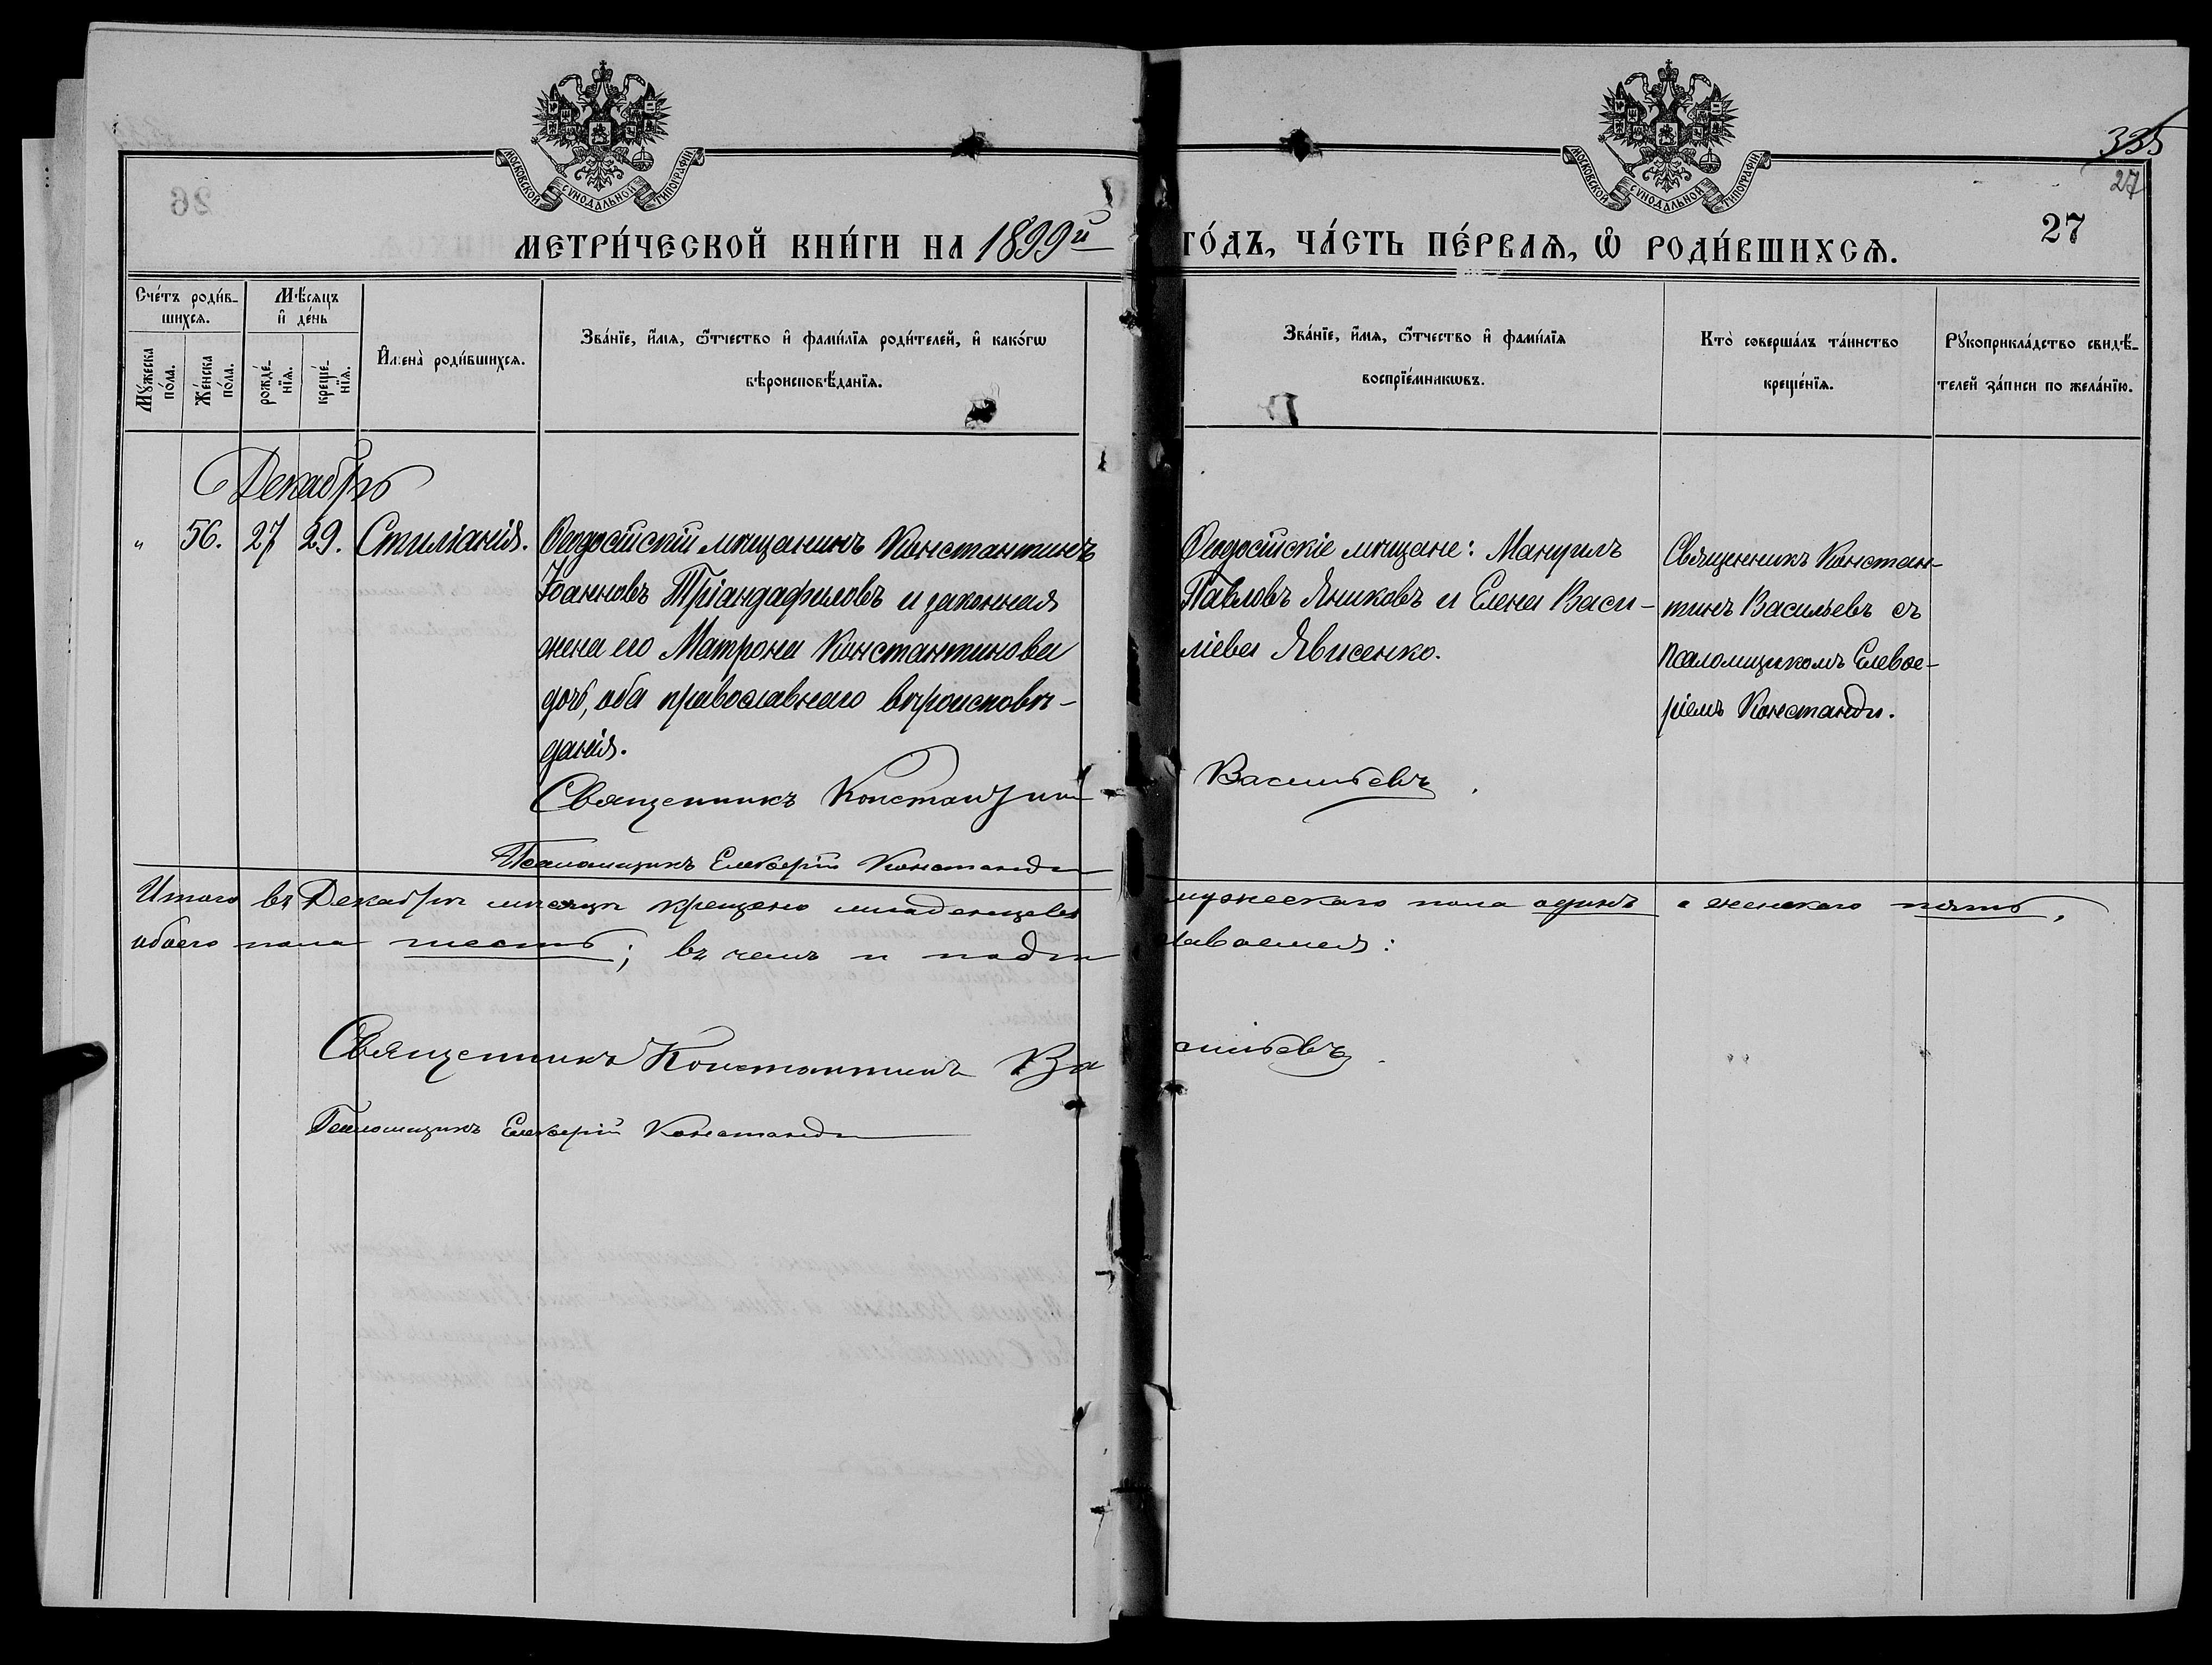 МОСКОВСКОЙ СѴНОДАЛЬНОЙ ТИПОГРАФІИ
МОСКОВСКОЙ СѴНОДАЛЬНОЙ ТИПОГРАФІИ
335
27
27
МЕТРИ́ЧЕСКОЙ КНИ́ГИ НА 1899й ГО́ДЪ, ЧА́СТЬ ПЕ́РВАѦ, Ѡ҆ РОДИ́ВШИХСѦ.
Сче́тъ роди́в-
шихсѧ.
Мѣ́сѧцъ
и҆ де́нь
Мꙋ́жеска
по́ла.
Же́нска
по́ла.
рожде́-
нїѧ.
креще́-
нїѧ.
И҆мена̀ роди́вшихсѧ.
Зва́нїе, и҆́мѧ, ѻ҆́тчество и҆ фами́лїѧ роди́телей, и҆ како́гѡ
вѣроисповѣ́данїѧ.
Зва́нїе, и҆́мѧ, ѻ҆́тчество и҆ фами́лїѧ
воспрїе́мникѡвъ.
Кто̀ соверша́лъ та́инство
креще́нїѧ.
Рꙋкоприкла́дство свидѣ́-
телей за́писи по жела́нїю.
Декабрь
" 56. 27 29. Стиліанія.
Ѳеодосійскій мѣщанинъ Константинъ
Іоанновъ Тріандафиловъ и законная
жена его Матрона Константинова
дочь, оба православнаго вѣроисповѣ-
данія.
Ѳеодосійскіе мѣщане: Мануилъ
Павловъ Яниковъ и Елена Васи-
ліева Явисенко.
Священникъ Констан-
тинъ Васильевъ съ
псаломщикомъ Елевѳе-
ріемъ Констанди.
Священникъ Константинъ Васильевъ.
Псаломщикъ Елевѳерій Констанди
Итого въ Декабрѣ мѣсяцѣ крещено младенцевъ мужескаго пола одинъ а женскаго пять,
обоего пола шесть; въ чемъ и подписываемся:
Священникъ Константинъ Васильевъ.
Псаломщикъ Елевѳерій Констанди